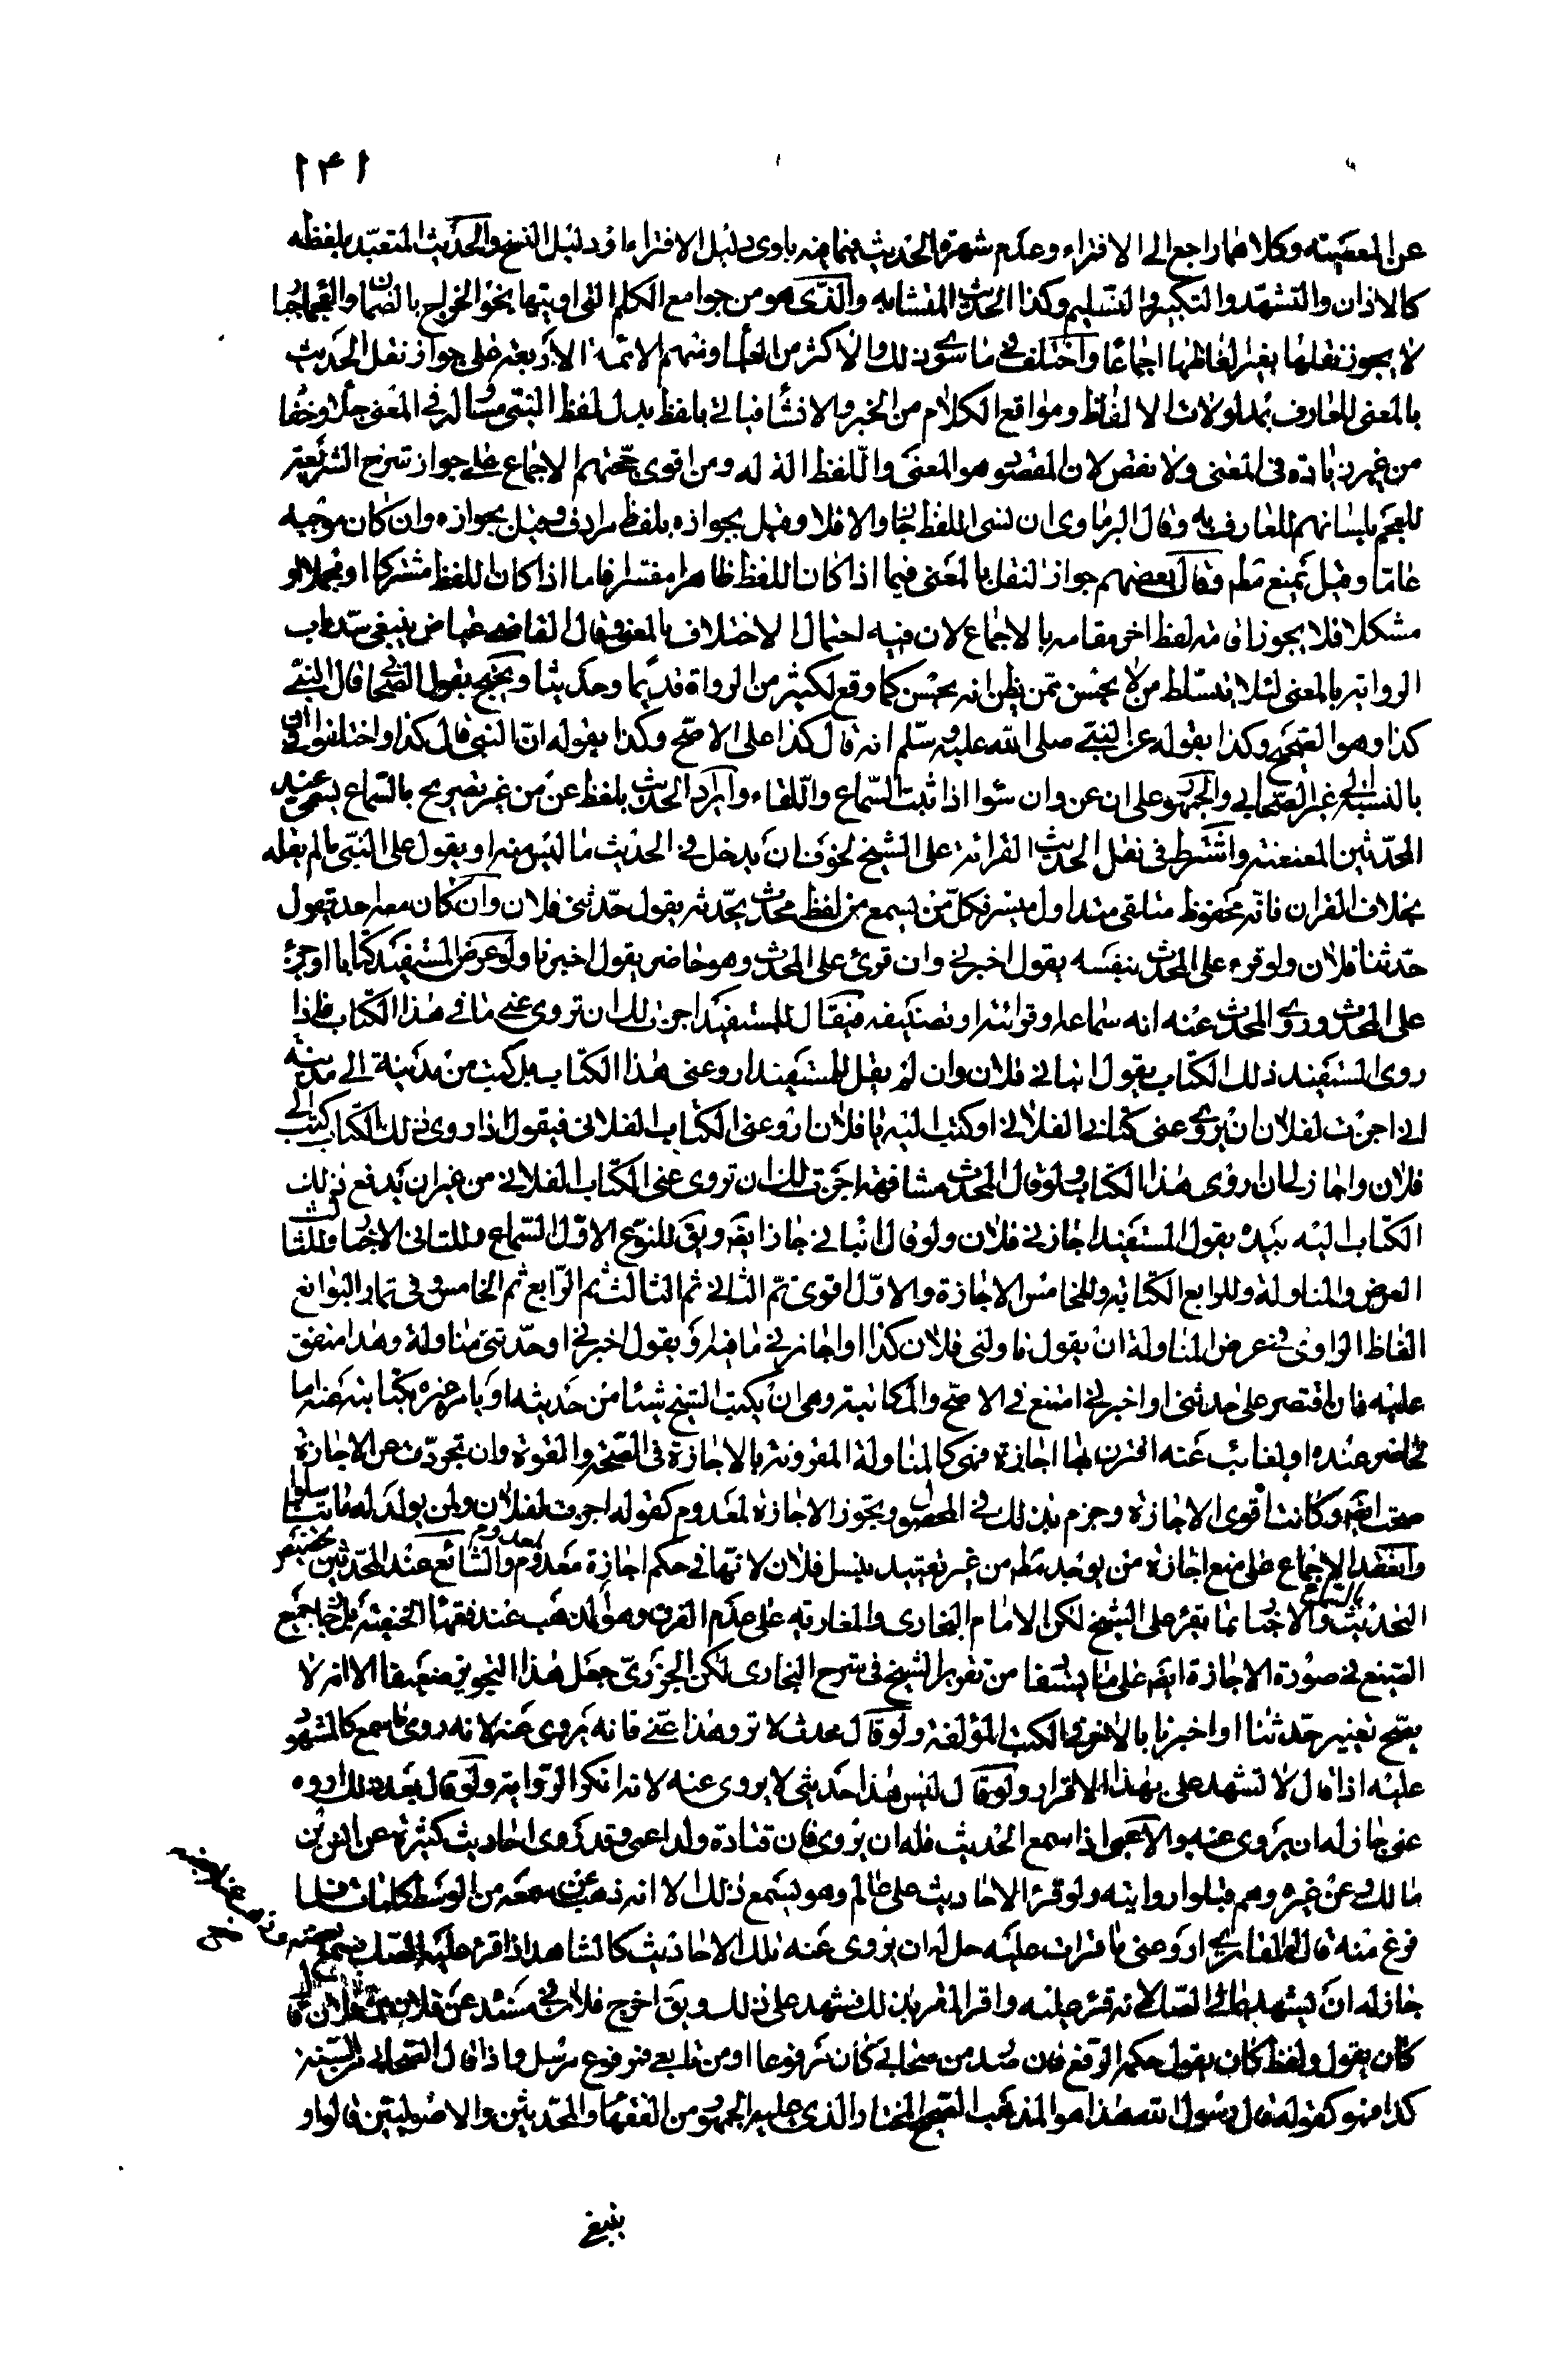 ١٤١
عن المعصية وكلاهما راجع الى الافتراء وعدم شهرة الحديث فيما فيه بلوى دليل الافتراء او دليل النسخ والحديث المتعبد بلفظه
كالاذان والتشهد والتكبير والتسليم وكذا الحديث المتشابه والذى هو من جوامع الكلم التى اوتيها نحو الخراج بالضمان والعجماء جبار
لا يجوز نقلها بغير لفاظها اجماعًا واختلف في ما سوى ذلك والاكثر من العلماء ومنهم الائمة الاربعة على جواز نقل الحديث
بالمعنى للعارف بمدلولات الالفاظ ومواقع الكلام من الخبر والانشاء فياتى بلفظ بدل لفظ النبى مساو له في المعنى جلاء وخفاء
من غير زيادة فى المعنى ولا نقص لان المقصود هو المعنى واللفظ الة له ومن اقوى حجتهم الاجماع على جواز شرح الشريعة
للعجم بلسانهم للعارف به وقال الماوردى ان نسى اللفظ جاز والا فلا وقيل بجوازه بلفظ مرادف وقيل بجوازه وان كان موجبه
عامًا وقيل بمنع مطلقا وقال بعضهم جواز النقل بالمعنى فيما اذا كان اللفظ ظاهرا مفسرا فاما اذا كان اللفظ مشتركا او مجملا او
مشكلا فلا يجوز اقامة لفظ اخر مقامه بالاجماع لان فيه احتمال الاختلاف بالمعنى وقال القاضى عياض ينبغى سد باب
الرواية بالمعنى لئلا يتسلط من لا يحسن ممن يظن انه يحسن كما وقع لكثير من الرواة قديمًا وحديثا ويحتج بقول الصحابى قال النبى
كذا وهو الصحيح وكذا بقوله عن النبى صلى الله عليه وسلم انه قال كذا على الاصح وكذا بقوله ان النبى قال كذا واختلفوا في ان
بالنسبة الى غير الصحابى والجمهور على ان عن وان سواء اذا ثبت السماع واللقاء وايراد الحديث بلفظ عن من غير تصريح بالسماع يسمى عند
المحدثين المعنعنة واشترط فى نقل الحديث القرائة على الشيخ لخوف ان يدخل في الحديث ما ليس منه او يقول على النبى ما لم يقله
بخلاف القران فانه محفوظ متلقى متداول ميسر فكل من يسمع من لفظ محدث يحدثه يقول حدثنى فلان وان كان معه احد يقول
حدثنا فلان ولو قرء على المحدث بنفسه يقول اخبرنى وان قرئ على المحدث وهو حاضر يقول اخبرنا ولو عرض المستفيد كتابا او جزء
على المحدث وروى المحدث عنه انه سماعه او قرائته او تصنيفه فيقال للمستفيد اجزت لك ان تروى عنى ما في هذا الكتاب فاذا
روى المستفيد ذلك الكتاب يقول انبانى فلان وان لم يقل للمستفيد ارو عنى هذا الكتاب بل كتب من مدينة الى مدينة
انى اجزت لفلان ان يروى عنى كتابى الفلانى او كتب اليه يا فلان ارو عنى الكتاب الفلانى فيقول اذا روى ذلك الكتاب كتب الى
فلان واجاز لى ان اروى هذا الكتاب ولو قال المحدث مشافهة اجزت لك ان تروى عنى الكتاب الفلانى من غير ان يدفع ذلك
الكتاب اليه بيده يقول المستفيد اجازنى فلان ولو قال انبانى جاز ايضا ويق للنوع الاول السماع وللثانى الاخبار وللثالث
العرض والمناولة وللرابع الكتابة وللخامس الاجازة والاول اقوى ثم الثانى ثم الثالث ثم الرابع ثم الخامس وفى
الفاظ الراوى فى عرض المناولة ان يقول ناولنى فلان كذا او اجازنى ما فيه او يقول اخبرنى او حدثنى مناولة وهذا متفق
عليه فان اقتصر على حدثنى او اخبرنى امتنع في الاصح والمكاتبة وهى ان يكتب الشيخ شيئا من حديثه او يامر غيره بكتابته عنه اما
لحاضر عنده او لغائب عنه اقترن بها اجازة فهى كالمناولة المقرونة بالاجازة فى الصحة والقوة وان تجردت عن الاجازة
صحت ايضا وكانت اقوى الاجازة وجزم بذلك في المحصول ويجوز الاجازة لمعدوم كقوله اجزت لفلان ولمن يولد له
وانعقد الاجماع على منع اجازة من يوجد مطلقا من غير تقييد بنسل فلان لانها في حكم اجازة معدوم والشائع عند المحدثين تخصيص
التحديث بالسماع والاخبار بما يقرء على الشيخ لكن الامام البخارى والمغاربة على عدم الفرق وهو المذهب عند فقهاء الحنفية
الصنع فى صورة الاجازة ايضا على ما يستفاد من تقرير الشيخ فى شرح البخارى لكن الجزرى جعل هذا التجويز ضعيفا الا انه لا
يصح تغيير حدثنا او اخبرنا بالاخر فى الكتب المؤلفة ولو قال محدث لا ترو هذا عنى فانه يروى عنه لانه روى ما سمع كالمشهود
عليه اذا قال لا تشهد على بهذا الاقرار ولو قال ليس هذا حديثى لا يروى عنه لانه انكر الرواية ولو قال بعد ذلك اروه
عنى جاز له ان يروى عنه والاعمى اذا سمع الحديث فله ان يروى فان قتادة ولد اعمى وقد روى احاديث كثيرة عن انس بن
مالك وعن غيره وهم قبلوا روايته ولو قرء الاحاديث على عالم وهو يسمع ذلك الا انه ذهب عن سمعه من الوسط كلمات فلما
فرغ منه قال للقارى ارو عنى ما قرات عليه حل له ان يروى عنه تلك الاحاديث كالشاهد اذا قرء عليه الصك
جاز له ان يشهد على الصك لانه قرء عليه واقر المقر بذلك فشهد على ذلك ويق اخرج فلان في مسنده عن فلان
كان يقول ولفظ كان يقول حكمه الرفع فان صدر من صحابى كان مرفوعا او من تابعى فمرفوع مرسل واذا قال الصحابى من السنة
كذا فهو كقوله قال رسول الله هذا هو المذهب الصحيح المختار الذى عليه الجمهور من الفقهاء والمحدثين والاصوليين قالوا و
ينبغى